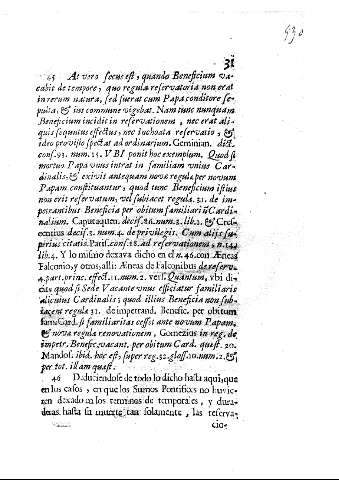 31
930
45 At vero secus est, quando Beneficium va-
cabit de tempore, quo regula reservatoria non erat
in rerum natura, sed fuerat cum Papa conditore se-
pulta, & ius commune vigebat. Nam tunc nunquam
Beneficium incidit in reservationem, nec erat ali-
quis sequutus effectus, nec inchoata reservatio, &
ideo provisio spectat ad ordinarium. Geminian. dict.
cons. 93. num. 15. VBI ponit hoc exemplum. Quod si
mortuo Papa vnus intrat in familiam vnius Car-
dinalis, & exivit antequam nove regulæ per novum
Papam constituantur, quod tunc Beneficium istius
non erit reservatum, vel subiacet regula. 31. de im-
petrantibus Beneficia per obitum familiariũ Cardi-
nalium. Caputaquen. decis. 26. num. 3. lib. 2. & Cres-
centius decis. 3. num. 4. de privilegis. Cum alijs su-
perius citatis. Paris. cons. 28. ad reservationem, n. 144
lib. 4. Y lo mismo dexava dicho en el n. 46. con Æneas
Falconio, y otros, alli: Æneas de Falconibus de reserv.
4. part. princ. effect. 11. num. 2. vers. Quantum, vbi di-
cit, quod si Sede Vacante vnus efficiatur familiaris
alicuius Cardinalis; quod illius Beneficia non sub-
iacent regulæ 31. de impetrand. Benefic. per obitum
fam. Card. si familiaritas cesset ante novum Papam,
& nova regula renovationem, Gomezius in reg. de
impetr. Benefic. vacant. per obitum Card. quæst. 20.
Mandos. ibid. hoc est, super reg. 32. gloss. 20. num. 2. &
per tot. illam quæst.
46 Deduciendose de todo lo dicho hasta aqui, que
en los casos, en que los Sumos Pontifices no huvie-
ren dexado en los terminos de temporales, y dura-
deras hasta su muerte tan solamente, las reserva-
cio-